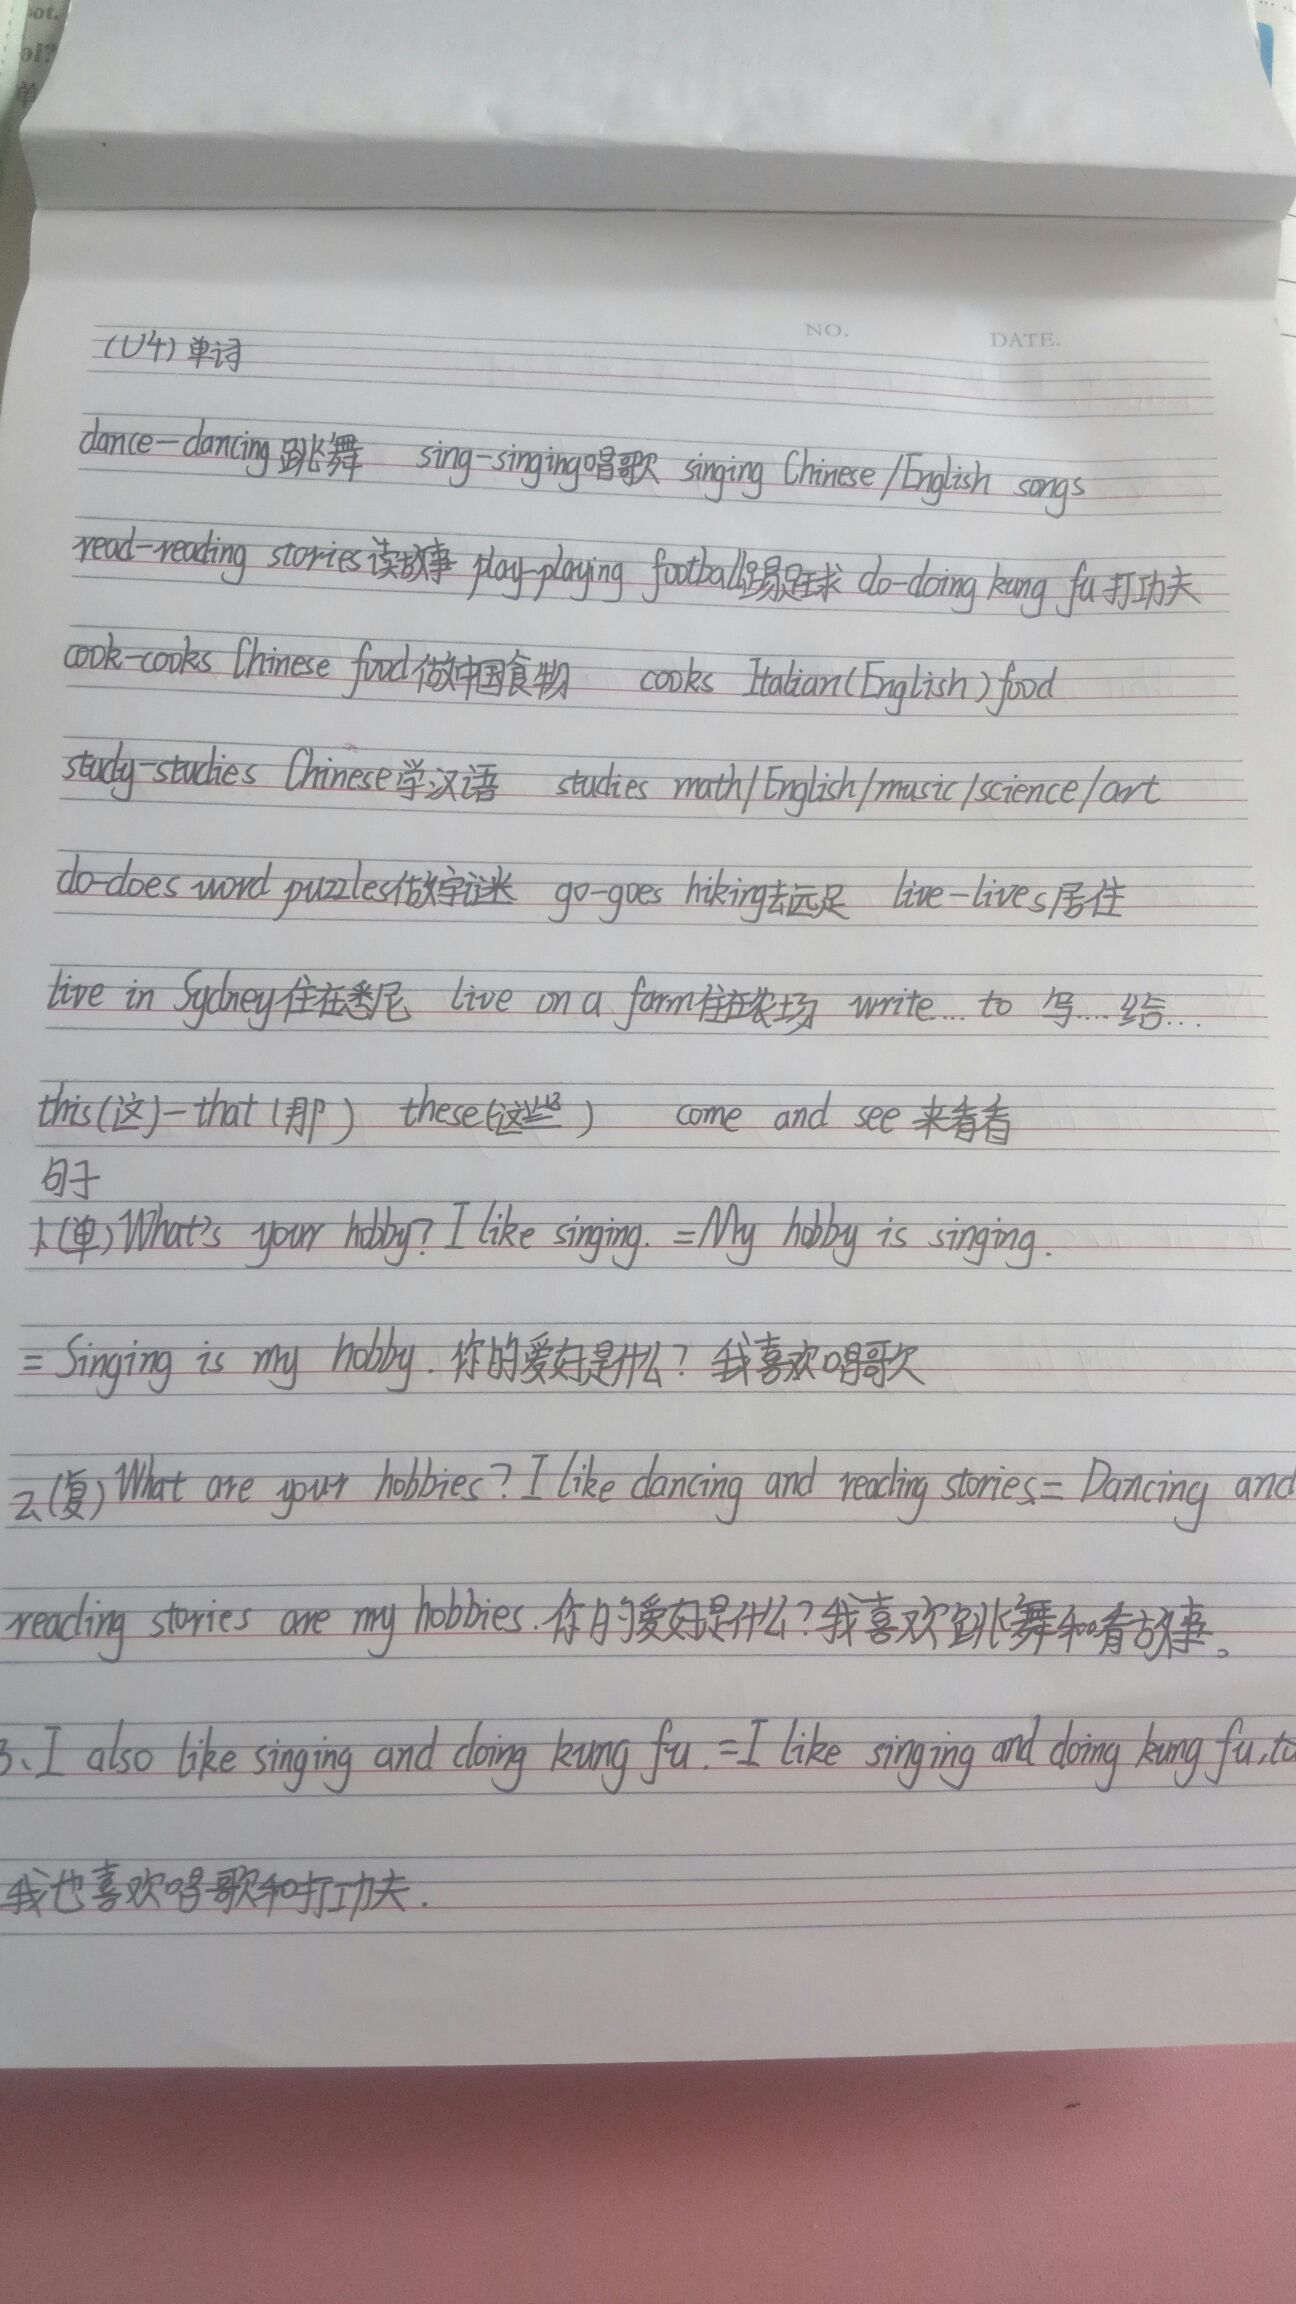 ot.
ol?
NO. DATE.
(U4)单词
dance-dancing跳舞 sing-singing唱歌 singing Chinese/English songs
read-reading stories读故事 play-playing football踢足球 do-doing kung fu打功夫
cook-cooks Chinese food做中国食物 cooks Italian(English)food
study-studies Chinese学汉语 studies math/English/music/science/art
do-does word puzzles做字谜 go-goes hiking去远足 live-lives居住
live in Sydney住在悉尼 live on a farm住在农场 write... to 写....给...
this(这)-that(那) these(这些) come and see来看看
句子
1.(单)What's your hobby? I like singing. =My hobby is singing.
= Singing is my hobby.你的爱好是什么?我喜欢唱歌
2.(复)What are your hobbies? I like dancing and reading stories.= Dancing and
reading stories are my hobbies.你的爱好是什么?我喜欢跳舞和看故事。
3、I also like singing and doing kung fu.=I like singing and doing kung fu,
我也喜欢唱歌和打功夫.